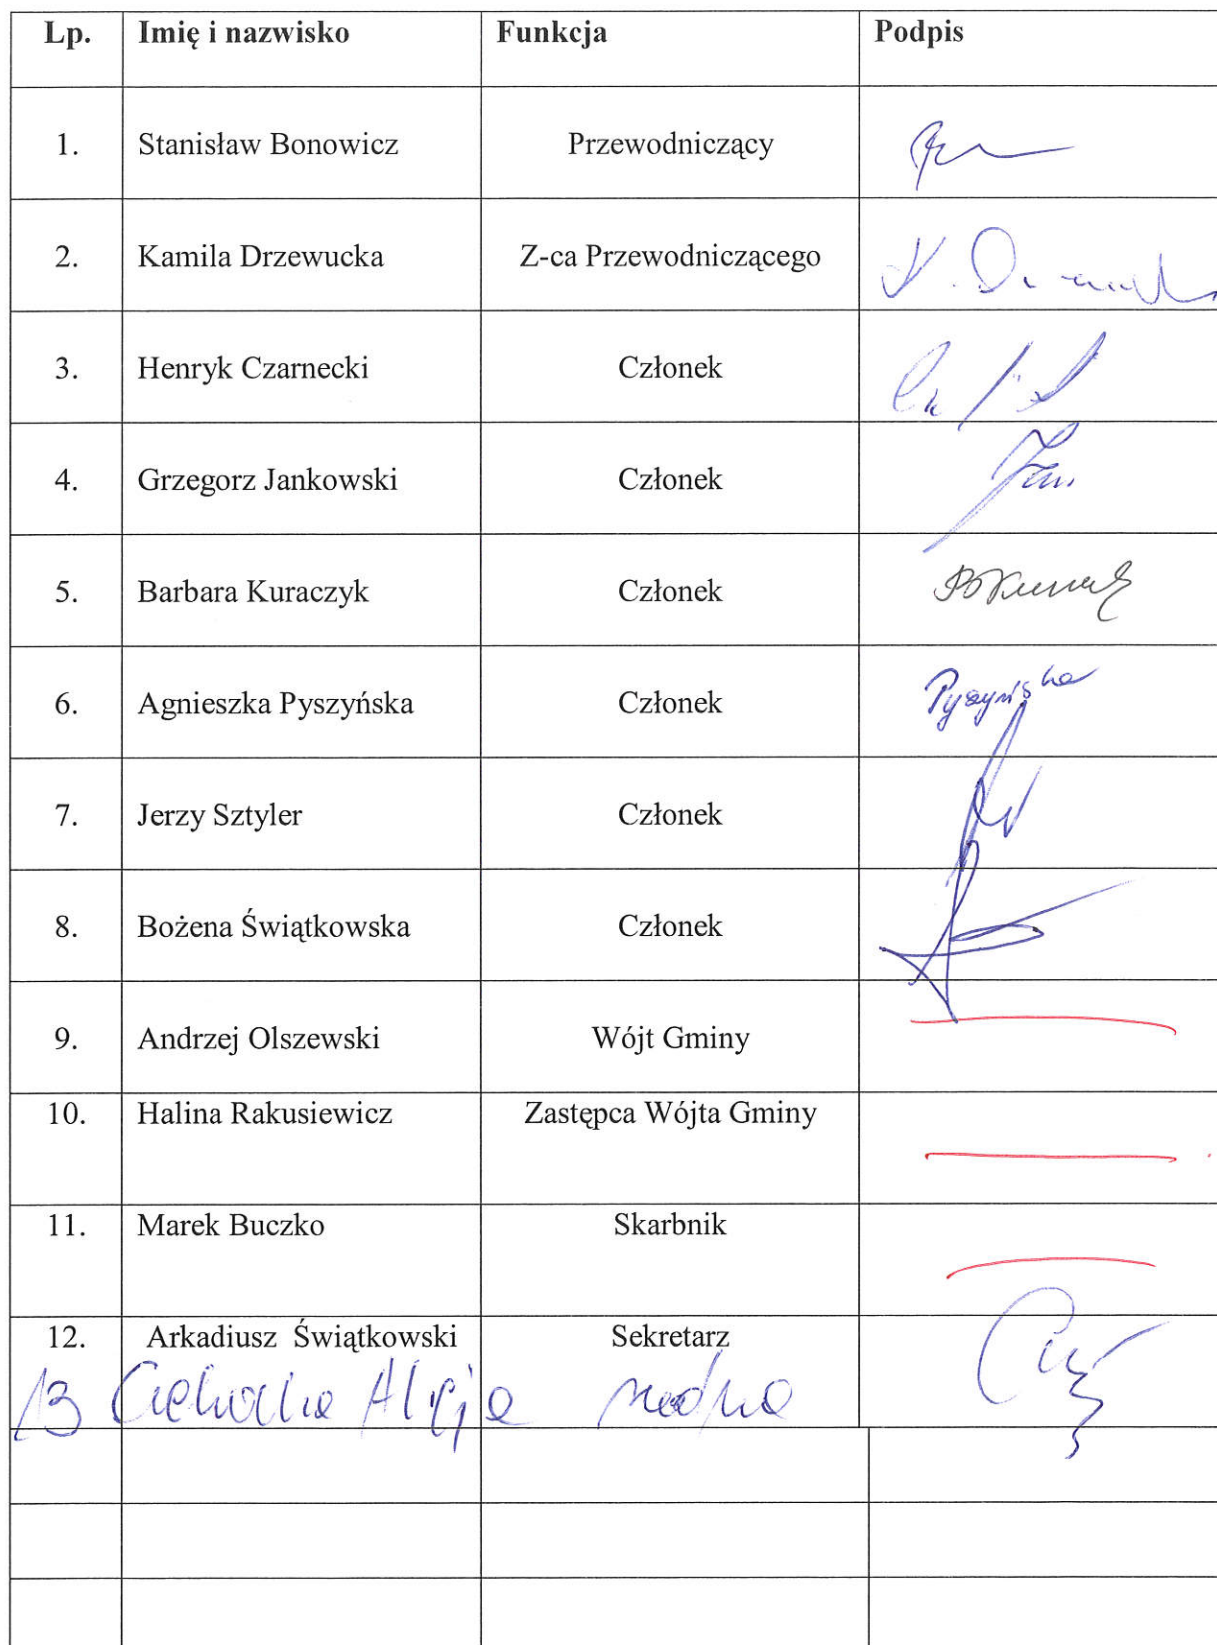 Lp. Imię i nazwisko Funkcja Podpis
1. Stanisław Bonowicz Przewodniczący
2. Kamila Drzewucka Z-ca Przewodniczącego
3. Henryk Czarnecki Członek
4. Grzegorz Jankowski Członek
5. Barbara Kuraczyk Członek
6. Agnieszka Pyszyńska Członek Pyszyńska
7. Jerzy Sztyler Członek
8. Bożena Świątkowska Członek
9. Andrzej Olszewski Wójt Gminy
10. Halina Rakusiewicz Zastępca Wójta Gminy
11. Marek Buczko Skarbnik
12. Arkadiusz Świątkowski Sekretarz
13 Alicja radna